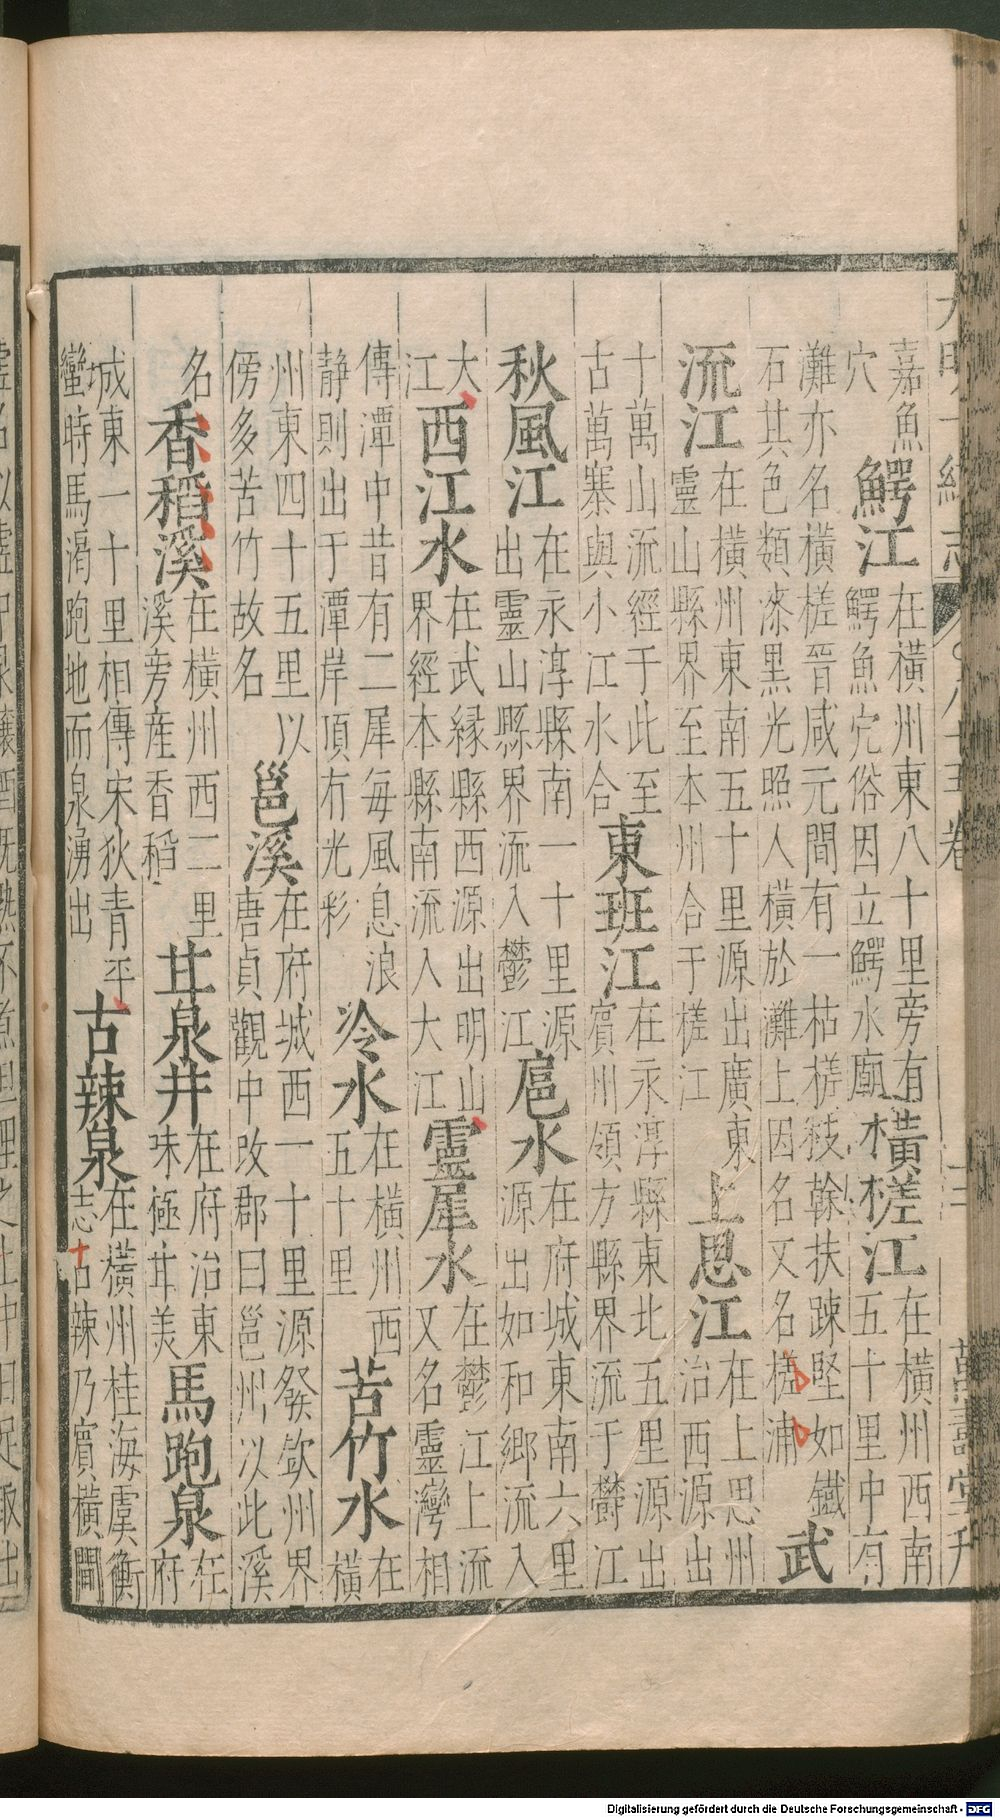 大明一統志 八十五卷 萬壽堂刋
嘉魚
穴
鰐江
在橫州東八十里旁有
鰐魚穴俗因立鰐水廟
橫槎江
在橫州西南
五十里中有
灘亦名橫槎晉咸元間有一枯槎枝幹扶踈堅如鐵
石其色類漆黑光照人橫於灘上因名又名槎浦
武
流江
在橫州東南五十里源出廣東
靈山縣界至本州合于槎江
上思江
在上思州
治西源出
十萬山流經于此至
古萬寨與小江水合
東班江
在永淳縣東北五里源出
賔州領方縣界流于欎江
秋風江
在永淳縣南一十里源
出靈山縣界流入鬱江
扈水
在府城東南六里
源出如和鄉流入
大
江
西江水
在武縁縣西源出明山
界經本縣南流入大江
靈犀水
在鬱江上流
又名靈灣相
傳潭中昔有二犀毎風息浪
静則出于潭岸頂有光彩
冷水
在橫州西
五十里
苦竹水
在
橫
州東四十五里以
傍多苦竹故名
邕溪
在府城西一十里源發欽州界
唐貞觀中改郡曰邕州以此溪
名
香稻溪
在橫州西二里
溪旁産香稻
甘泉井
在府治東
味極甘美
馬跑泉
在
府
城東一十里相傳宋狄青平
蠻時馬渴跑地而泉湧出
古辣泉
在橫州桂海虞衡
志古辣乃賔橫間
墟名以墟中泉釀酒既熟不煮但埋之土中日足取出
Digitalisierung gefördert durch die Deutsche Forschungsgemeinschaft - DFG